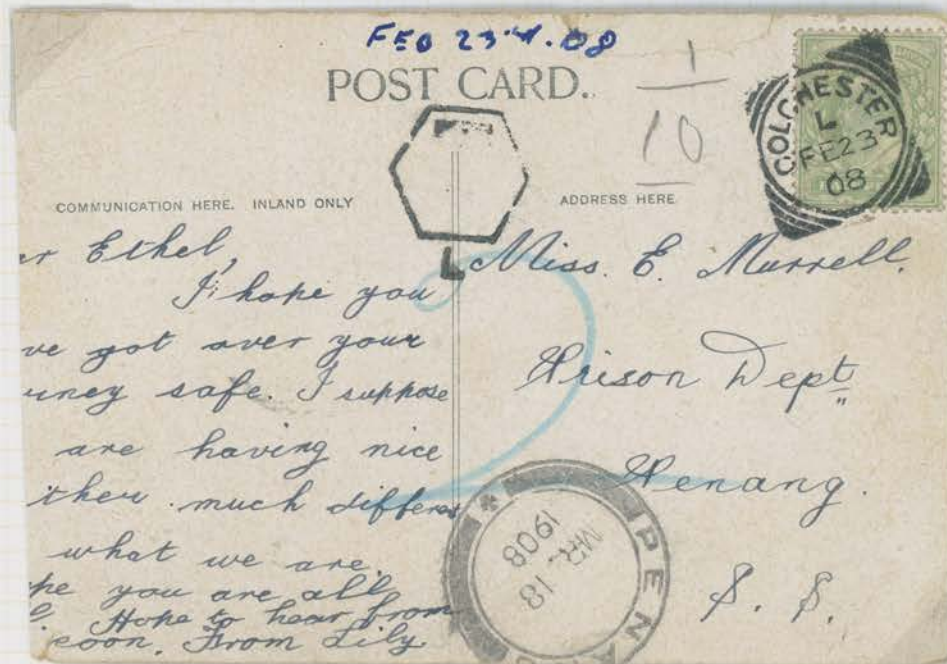 FEB 23rd. 08
POST CARD.
1
10
COLCHESTER
L
FE 23
08
COMMUNICATION HERE. INLAND ONLY
ADDRESS HERE
L
er Ethel,
I hope you
ve got over your
urney safe. I suppose
are having nice
ther much differen
what we are.
pe you are all
Hope to hear from
soon. From Lily.
Miss. E. Murrell.
Prison Dept
Penang.
S. S.
2
PENA
MR 18
1908